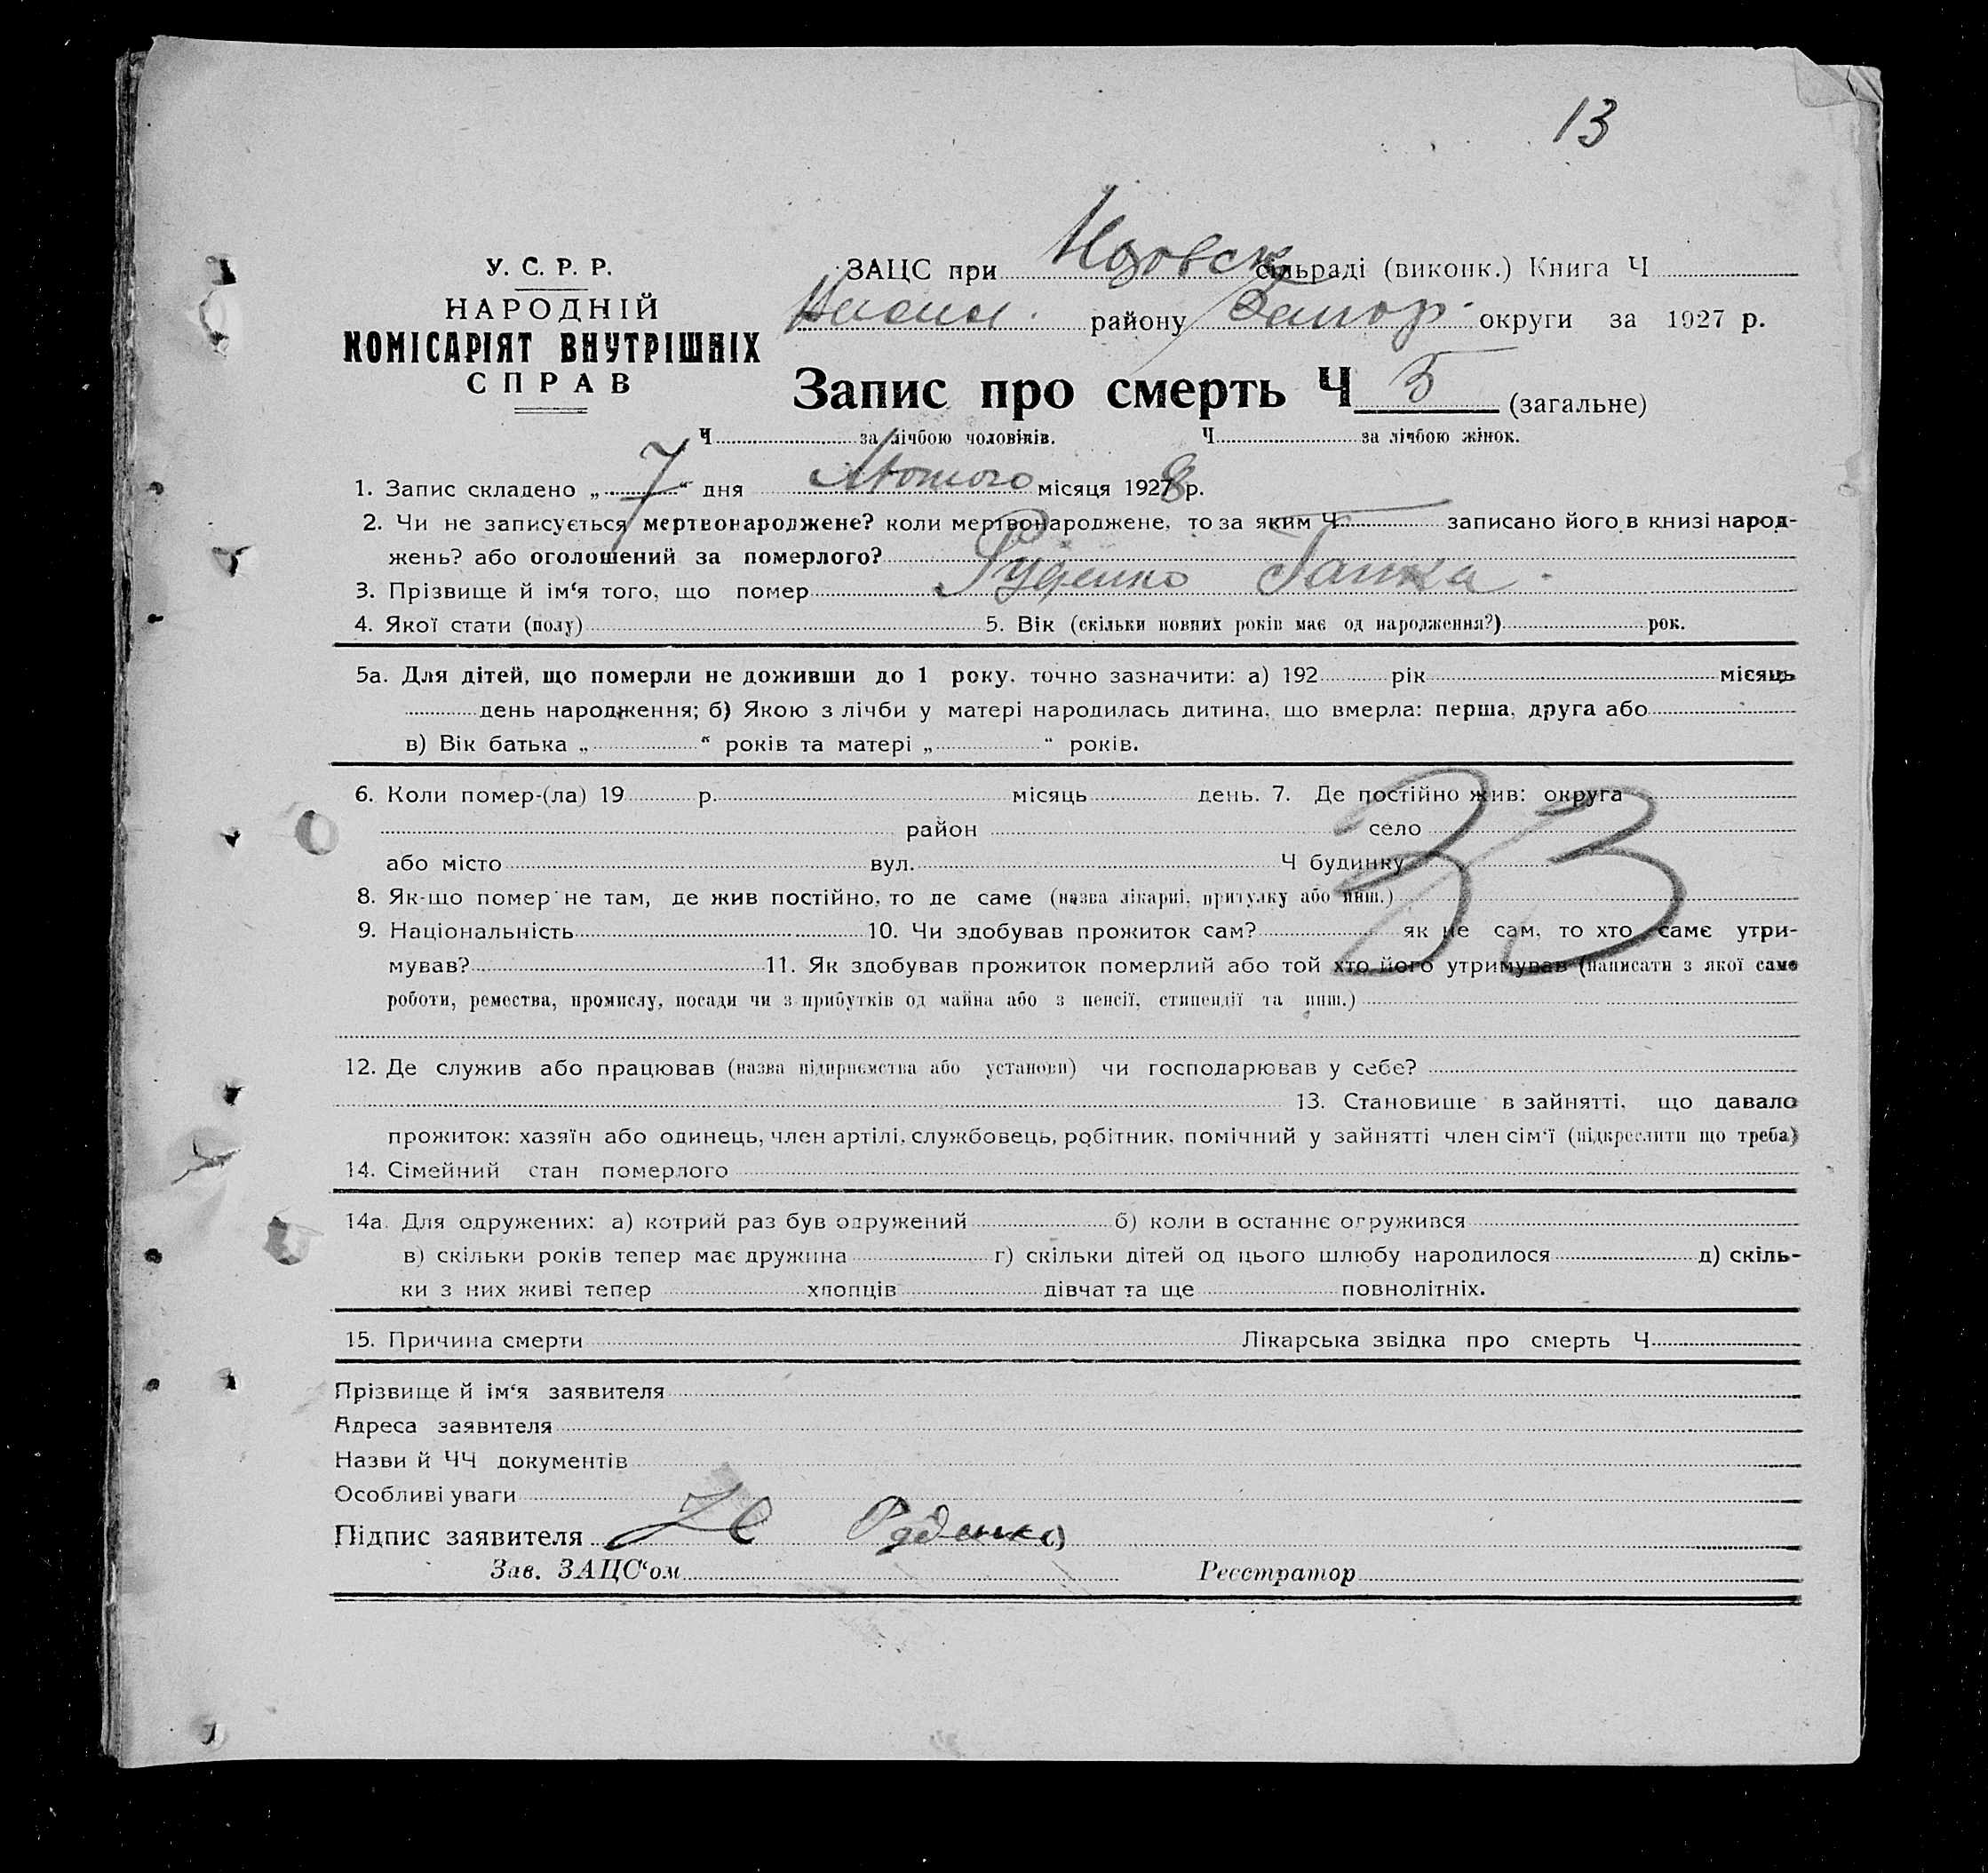 13
У. С. Р. Р.
НАРОДНІЙ
КОМІСАРІЯТ ВНУТРІШНІХ
СПРАВ
ЗАЦС при сільраді (виконк.) Книга Ч
району Запор. округи за 1927 р.
Запис про смерть Ч 5 (загальне)
Ч за лічбою чоловіків. Ч за лічбою жінок.
1. Запис складено „ 7 “ дня Лютого місяця 1928 р.
2. Чи не записується мертвонароджене? коли мертвонароджене, то за яким Ч записано його в книзі народ-
жень? або оголошений за померлого?
3. Прізвище й ім‘я того, що помер Руденко Ганка
4. Якої стати (полу) 5. Вік (скільки повних років має од народження?) рок.
5а. Для дітей, що померли не доживши до 1 року. точно зазначити: а) 192 рік місяць
день народження; б) Якою з лічби у матері народилась дитина, що вмерла: перша, друга або
в) Вік батька „ “ років та матері „ “ років.
6. Коли помер-(ла) 19 р. місяць день. 7. Де постійно жив: округа
район село
33
або місто вул. Ч будинку
8. Як-що помер не там, де жив постійно, то де саме (назва лікарні, притулку або инш.)
9. Національність 10. Чи здобував прожиток сам? як не сам, то хто саме утри-
мував? 11. Як здобував прожиток померлий або той хто його утримував (написати з якої саме
роботи, ремества, промислу, посади чи з прибутків од майна або з пенсії, стипендії та инш.)
12. Де служив або працював (назва підприємства або установи) чи господарював у себе?
13. Становище в зайнятті, що давало
прожиток: хазяїн або одинець, член артілі, службовець, робітник, помічний у зайнятті член сім‘ї (підкреслити що треба)
14. Сімейний стан померлого
14а. Для одружених: а) котрий раз був одружений б) коли в останнє одружився
в) скільки років тепер має дружина г) скільки дітей од цього шлюбу народилося д) скіль-
ки з них живі тепер хлопців дівчат та ще повнолітніх.
15. Причина смерти Лікарська звідка про смерть Ч
Прізвище й ім‘я заявителя
Адреса заявителя
Назви й ЧЧ документів
Особливі уваги
Підпис заявителя Руденко
Зав. ЗАЦС‘ом Реєстратор